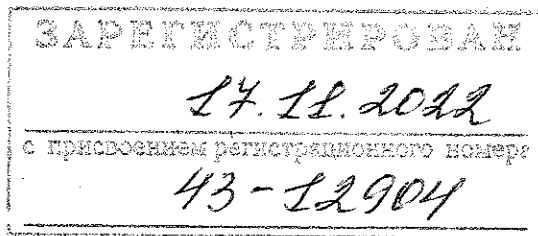 ЗАРЕГИСТРИРОВАН
17.11.2022
с присвоением регистрационного номера
43-12904